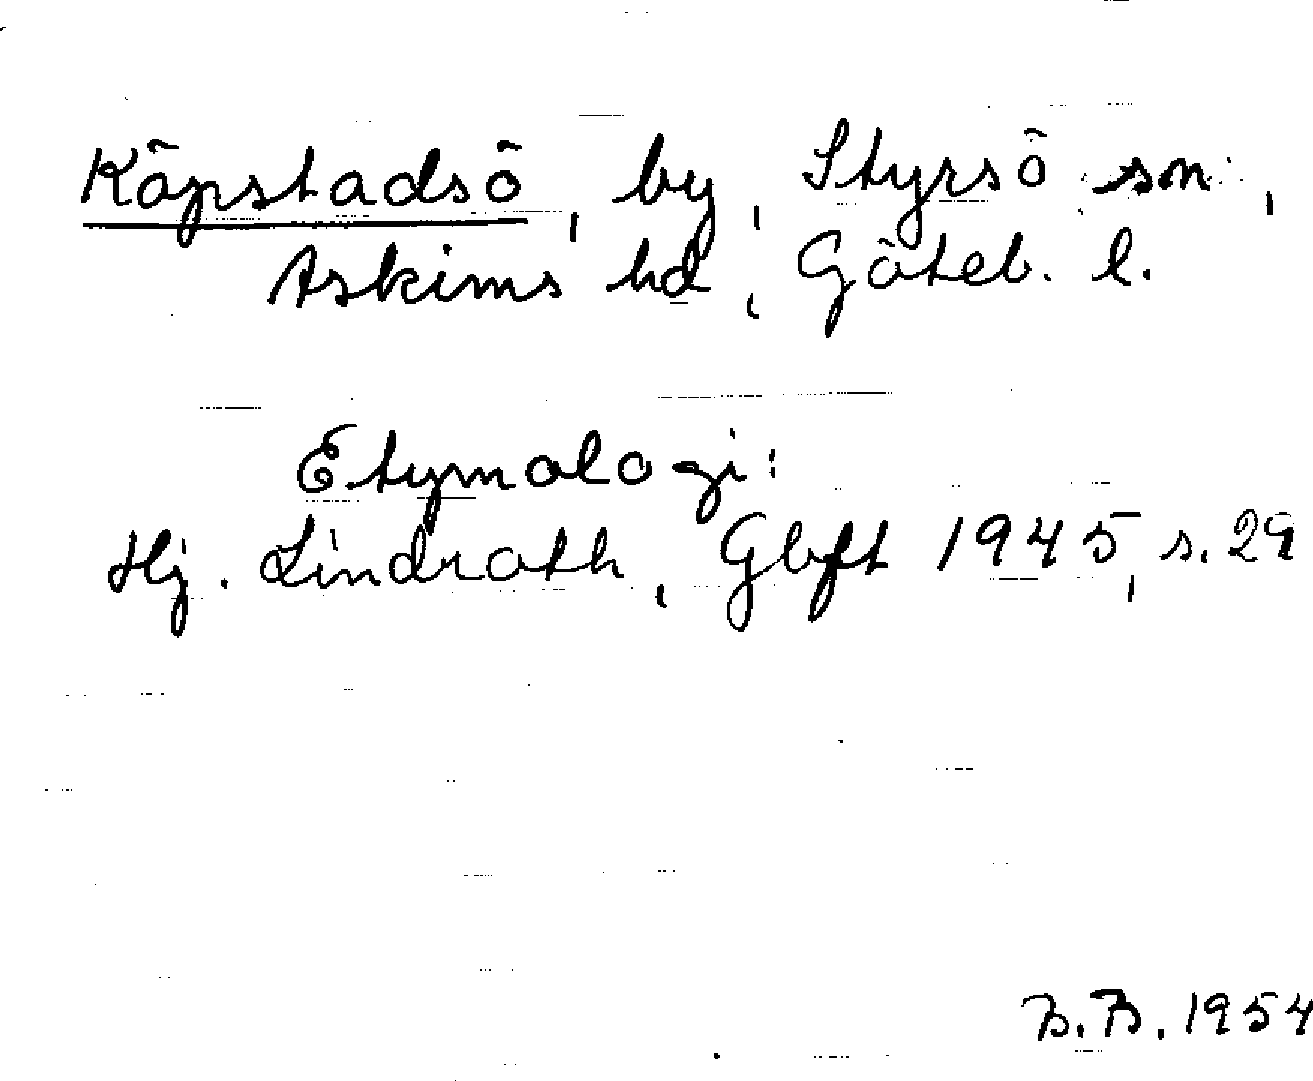 Köpstadsö, by, Styrsö sn,
Askims hd, Göteb. l.
Etymologi:
Hj. Lindroth, Gbgft 1945, s. 29
B.B. 1954